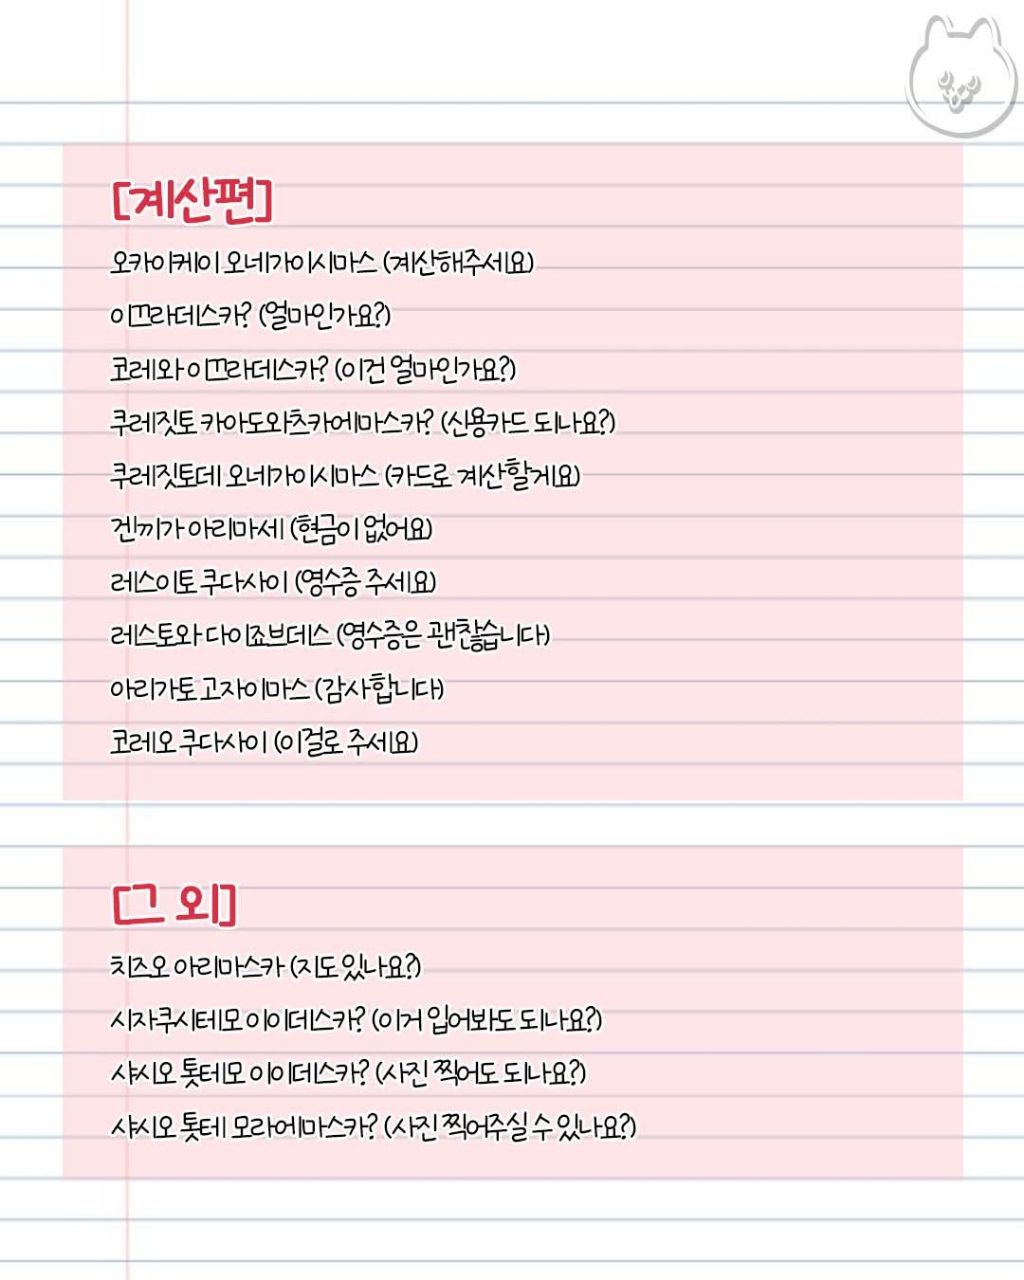 [계산편]
오카이케이 오네가이시마스 (계산해주세요)
이끄라데스카? (얼마인가요?)
코레와 이끄라데스카? (이건 얼마인가요?)
쿠레짓토 카아도와츠카에마스카? (신용카드 되나요?)
쿠레짓토데 오네가이시마스 (카드로 계산할게요)
겐끼가 아리마세 (현금이 없어요)
레스이토 쿠다사이 (영수증 주세요)
레스토와 다이죠브데스 (영수증은 괜찮습니다)
아리가토 고자이마스 (감사합니다)
코레오 쿠다사이 (이걸로 주세요)
[그 외]
치즈오 아리마스카 (지도 있나요?)
시자쿠시테모 이이데스카? (이거 입어봐도 되나요?)
샤시오 톳테모 이이데스카? (사진 찍어도 되나요?)
샤시오 톳테 모라에마스카? (사진 찍어주실 수 있나요?)